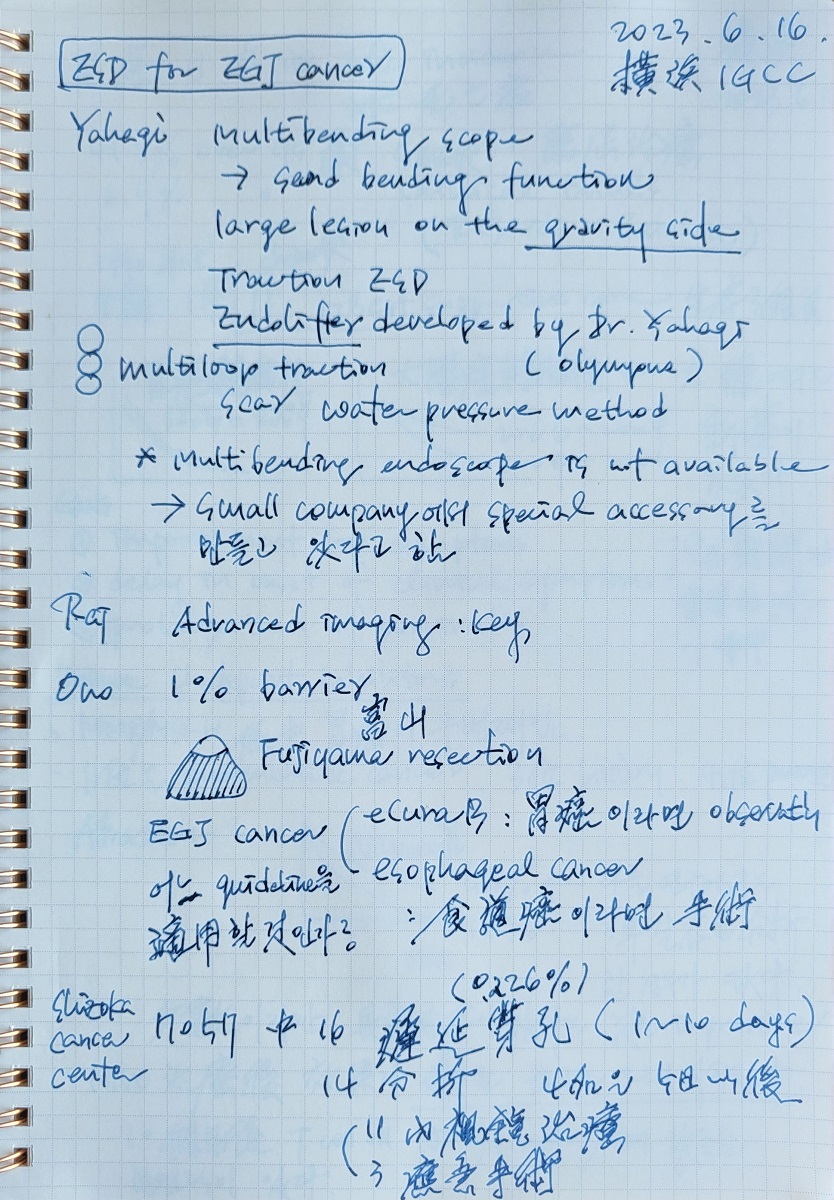 2023. 6. 16.
橫浜 IGCC
ESD for EGJ cancer
Yahagi Multibending scope
→ 2nd bending function
large lesion on the gravity side
Traction ESD
Endolifter developed by Dr. Yahagi
multiloop traction (Olympus)
scar water pressure method
* Multibending endoscope is not available
→ small company에서 special accessory를
만들고 있다고 함
Raj Advanced imaging : key
Ono 1% barrier
富山
Fujiyama resection
EGJ cancer eCura B : 胃癌이라면 observath
esophageal cancer
어느 guideline을 : 食道癌이라면 手術
適用할 것인가?
(0.226%)
Shizoka cancer center 7057 中 16 遲延穿孔 (1~10 days)
14 分析
11 內視鏡治療
3 應急手術